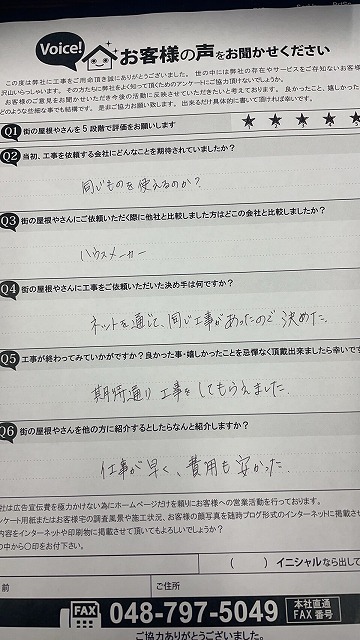 Voice!
お客様の声をお聞かせください
この度は弊社に工事をご用命頂き誠にありがとうございました。世の中には弊社の存在やサービスをご存知ないお客様
沢山いらっしゃいます。その方たちに弊社をよく知って頂くためのアンケートにご協力頂けないでしょうか。
お客様のご意見をお聞かせいただき今後の活動に反映させていただきたいと考えております。良かったこと、嬉しかった
どのような些細な事でも結構です。是非ご協力お願い致します。出来るだけ具体的に書いて頂ければ幸いです。
Q1 街の屋根やさんを5段階で評価をお願いします
★ ★ ★ ★ ★
Q2 当初、工事を依頼する会社にどんなことを期待されていましたか?
同じものを使えるのか?
Q3 街の屋根やさんにご依頼いただく際に他社と比較しました方はどこの会社と比較しましたか?
ハウスメーカー
Q4 街の屋根やさんに工事をご依頼いただいた決め手は何ですか?
ネットを通じて、同じ工事があったので決めた.
Q5 工事が終わってみていかがですか?良かった事・嬉しかったことを忌憚なく頂戴出来ましたら幸いです
期待通り工事をしてもらえました.
Q6 街の屋根やさんを他の方に紹介するとしたらなんと紹介しますか?
仕事が早く、費用も安かった.
社は広告宣伝費を極力かけない為にホームページだけを頼りにお客様への営業活動を行っております。
ンケート用紙またはお客様宅の調査風景や施工状況、お客様の顔写真を随時ブログ形式のインターネットに掲載させ
内容をインターネットや印刷物に掲載させて頂いてもよろしいでしょうか?
の中から〇印をお付下さい。
( ) イニシャルなら出して
前
ご住所
FAX 048-797-5049 本社直通 FAX 番号
ご協力ありがとうございまし